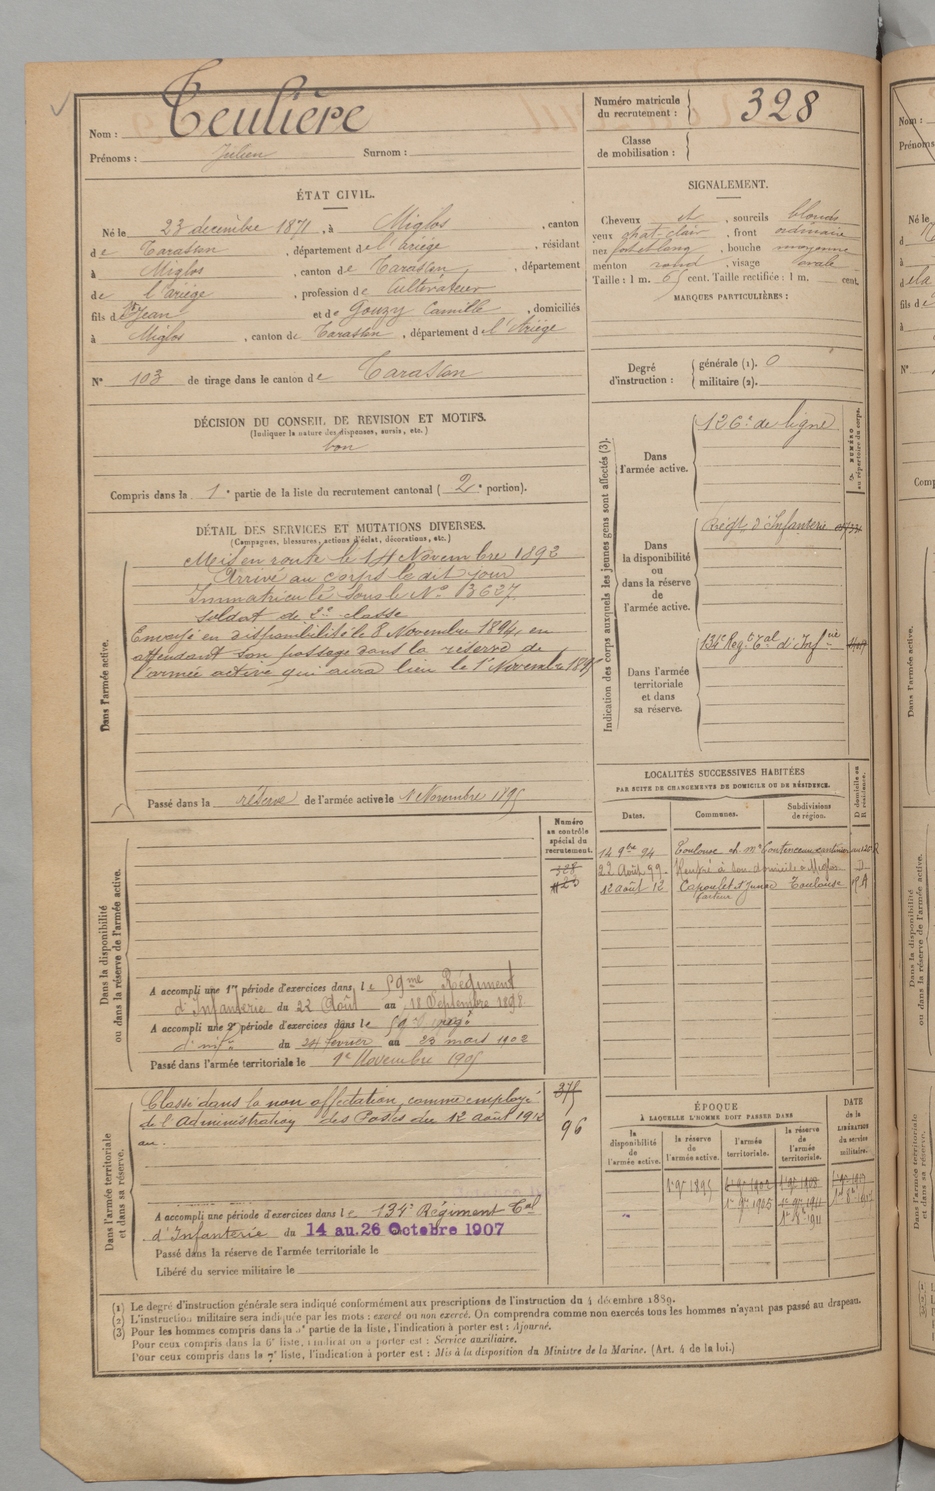 Nom : Teulière
Prénoms : Julien Surnom :
Numéro matricule du recrutement : 328
Classe de mobilisation :
ÉTAT CIVIL.
Né le 23 décembre 1871, à Miglos, canton
de Tarascon, département de l'ariège, résidant
à Miglos, canton de Tarascon, département
de l'ariège, profession de Cultivateur
fils de Jean et de Gouzy Camille, domiciliés
à Miglos, canton de Tarascon, département de l'Ariège
N° 103 de tirage dans le canton de Tarascon
SIGNALEMENT.
Cheveux et, sourcils blonds
yeux chat. clair, front ordinaire
nez fort et long, bouche moyenne
menton rond, visage ovale
Taille : 1 m. 65 cent. Taille rectifiée : 1 m. cent.
MARQUES PARTICULIÈRES :
Degré d'instruction : générale (1). 0
militaire (2).
DÉCISION DU CONSEIL DE REVISION ET MOTIFS.
(Indiquer la nature des dispenses, sursis, etc.)
bon
Compris dans la 1e partie de la liste du recrutement cantonal (2e portion).
DÉTAIL DES SERVICES ET MUTATIONS DIVERSES.
(Campagnes, blessures, actions d'éclat, décorations, etc.)
Dans l'armée active.
Mis en route le 14 Novembre 1892
Arrivé au corps le dit jour
Immatriculé sous le N° 3627
soldat de 2e classe
Envoyé en disponibilité le 8 Novembre 1894, en
attendant son passage dans la réserve de
l'armée active qui aura lieu le 1er Novembre 1895
Passé dans la réserve de l'armée active le 1 Novembre 1895
Indication des corps auxquels les jeunes gens sont affectés (3).
N° NUMÉRO au répertoire du corps.
Dans l'armée active.
126e de ligne
Dans la disponibilité ou dans la réserve de l'armée active.
Régt d'Infanterie
Dans l'armée territoriale et dans sa réserve.
134e Regt Tal d'Infrie
LOCALITÉS SUCCESSIVES HABITÉES
PAR SUITE DE CHANGEMENTS DE DOMICILE OU DE RÉSIDENCE.
Dates. Communes. Subdivisions de région. D domicile ou R résidence.
14 9bre 94 Toulouse ch. Mr
22 Août 99 Rentré à son domicile à Miglos D
12 août 12 Capoulet et Junac Toulouse R A
facteur
Numéro au contrôle spécial du recrutement.
328
Dans la disponibilité ou dans la réserve de l'armée active.
A accompli une 1re période d'exercices dans le 59me Régiment
d'Infanterie du 22 Août au 18 Septembre 1898
A accompli une 2e période d'exercices dans le 59e
d'infie du 24 février au 23 mars 1902
Passé dans l'armée territoriale le 1er Novembre 1905
Dans l'armée territoriale et dans sa réserve.
Classé dans la non affectation, comme employé
de l'Administration des Postes du 12 août 1912
au
375
96
A accompli une période d'exercices dans le 134e Régiment Tal
d'Infanterie du 14 au 26 Octobre 1907
Passé dans la réserve de l'armée territoriale le
Libéré du service militaire le
ÉPOQUE
À LAQUELLE L'HOMME DOIT PASSER DANS
la disponibilité de l'armée active. la réserve de l'armée active. l'armée territoriale. la réserve de l'armée territoriale.
DATE de la LIBÉRATION du service militaire.
1er 9bre 1895
1er 9bre 1905
1er 8bre 1911
(1) Le degré d'instruction générale sera indiqué conformément aux prescriptions de l'instruction du 4 décembre 1889.
(2) L'instruction militaire sera indiquée par les mots : exercé ou non exercé. On comprendra comme non exercés tous les hommes n'ayant pas passé au drapeau.
(3) Pour les hommes compris dans la 5e partie de la liste, l'indication à porter est : Ajourné.
Pour ceux compris dans la 6e liste, l'indication à porter est : Service auxiliaire.
Pour ceux compris dans la 7e liste, l'indication à porter est : Mis à la disposition du Ministre de la Marine. (Art. 4 de la loi.)